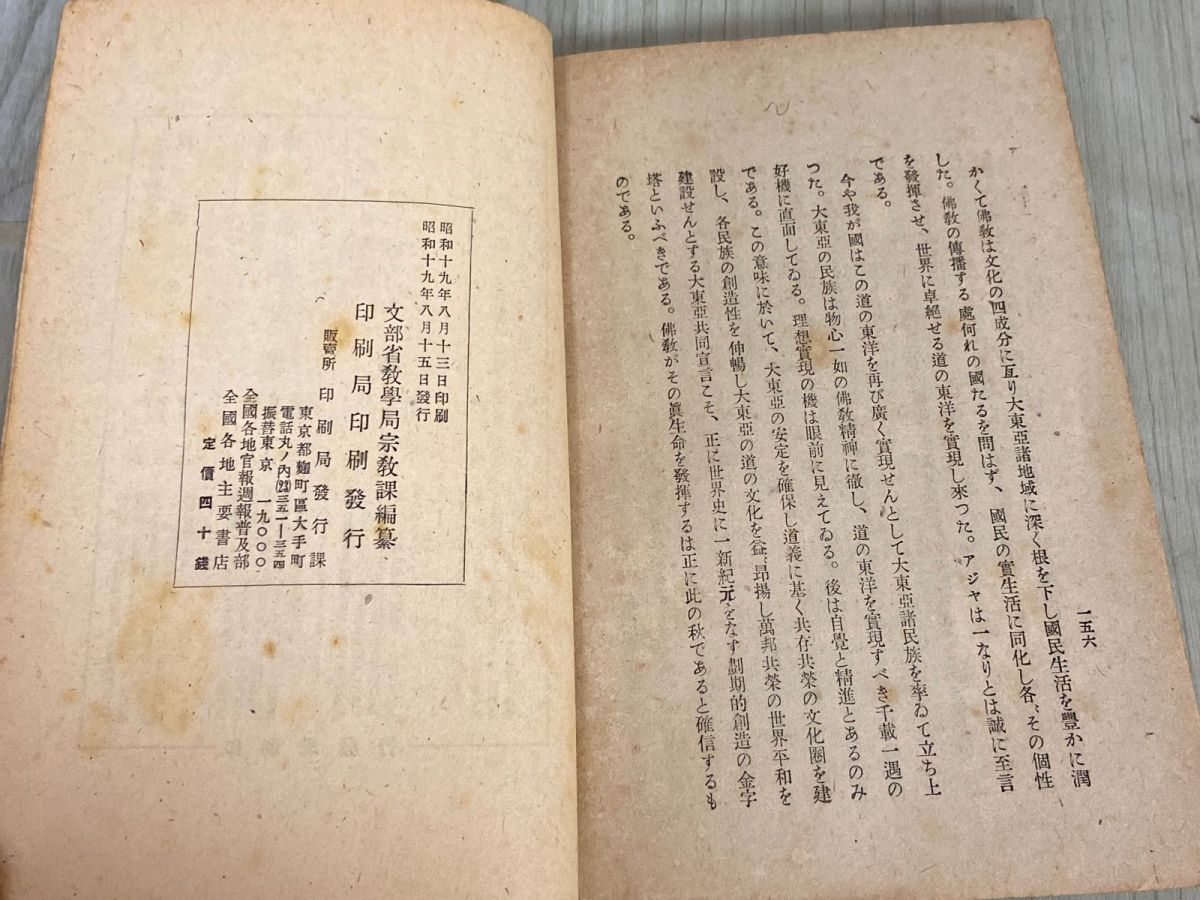 一五六
かくて佛教は文化の四成分に亙り大東亞諸地域に深く根を下し國民生活を豐かに潤
した。佛教の傳播する處何れの國たるを問はず、國民の實生活に同化し各〻その個性
を發揮させ、世界に卓絕せる道の東洋を實現し來つた。アジヤは一なりとは誠に至言
である。
今や我が國はこの道の東洋を再び廣く實現せんとして大東亞諸民族を率ゐて立ち上
つた。大東亞の民族は物心一如の佛教精神に徹し、道の東洋を實現すべき千載一遇の
好機に直面してゐる。理想實現の機は眼前に見えてゐる。後は自覺と精進とあるのみ
である。この意味に於いて、大東亞の安定を確保し道義に基く共存共榮の文化圈を建
設し、各民族の創造性を伸暢し大東亞の道の文化を益〻昂揚し萬邦共榮の世界平和を
建設せんとする大東亞共同宣言こそ、正に世界史に一新紀元をなす劃期的創造の金字
塔といふべきである。佛教がその眞生命を發揮するは正に此の秋であると確信するも
のである。
昭和十九年八月十三日印刷
昭和十九年八月十五日發行
文部省教學局宗教課編纂
印刷局印刷發行
販賣所 印刷局發行課
東京都麴町區大手町
電話丸ノ內(23)三五一―三五四
振替東京一九〇〇〇
全國各地官報週報普及部
全國各地主要書店
定價四十錢